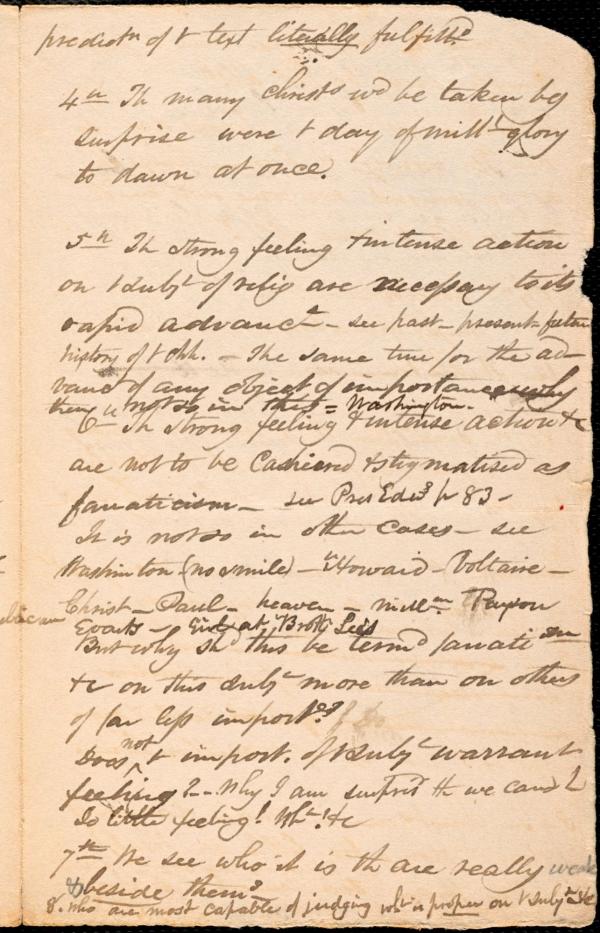 predictn of t text literally fulfilld
4th Th many Christs wd be taken by
surprise were t day of milll glory
to dawn at once.
5th Th strong feeling & intense action
on t subjt of relig are necessary to its
rapid advanct - see past - present - future
history of t chh. - The same true for the ad-
vanct of any object of importance - why
then is not so in this = Washington.
6th Th strong feeling & intense action &c
are not to be Cashierd & stygmatised as
fanaticism - see Pres Edws p 83 -
It is not so in other cases - see
Washington (no smile) - Howard - Voltaire -
Christ - Paul - heaven - millnm Payson
Evarts - at Brothr Lee's
But why shd this be termd fanaticism
&c on this subjt more than on others
of far less import?
Does not t import. of t subjt warrant
feeling? - Why I am surprisd th we cand
so little feeling! Wht! &c
7th We see who it is th are really weak
& beside thems
8. who are most capable of judging wht is proper on t subjt &c